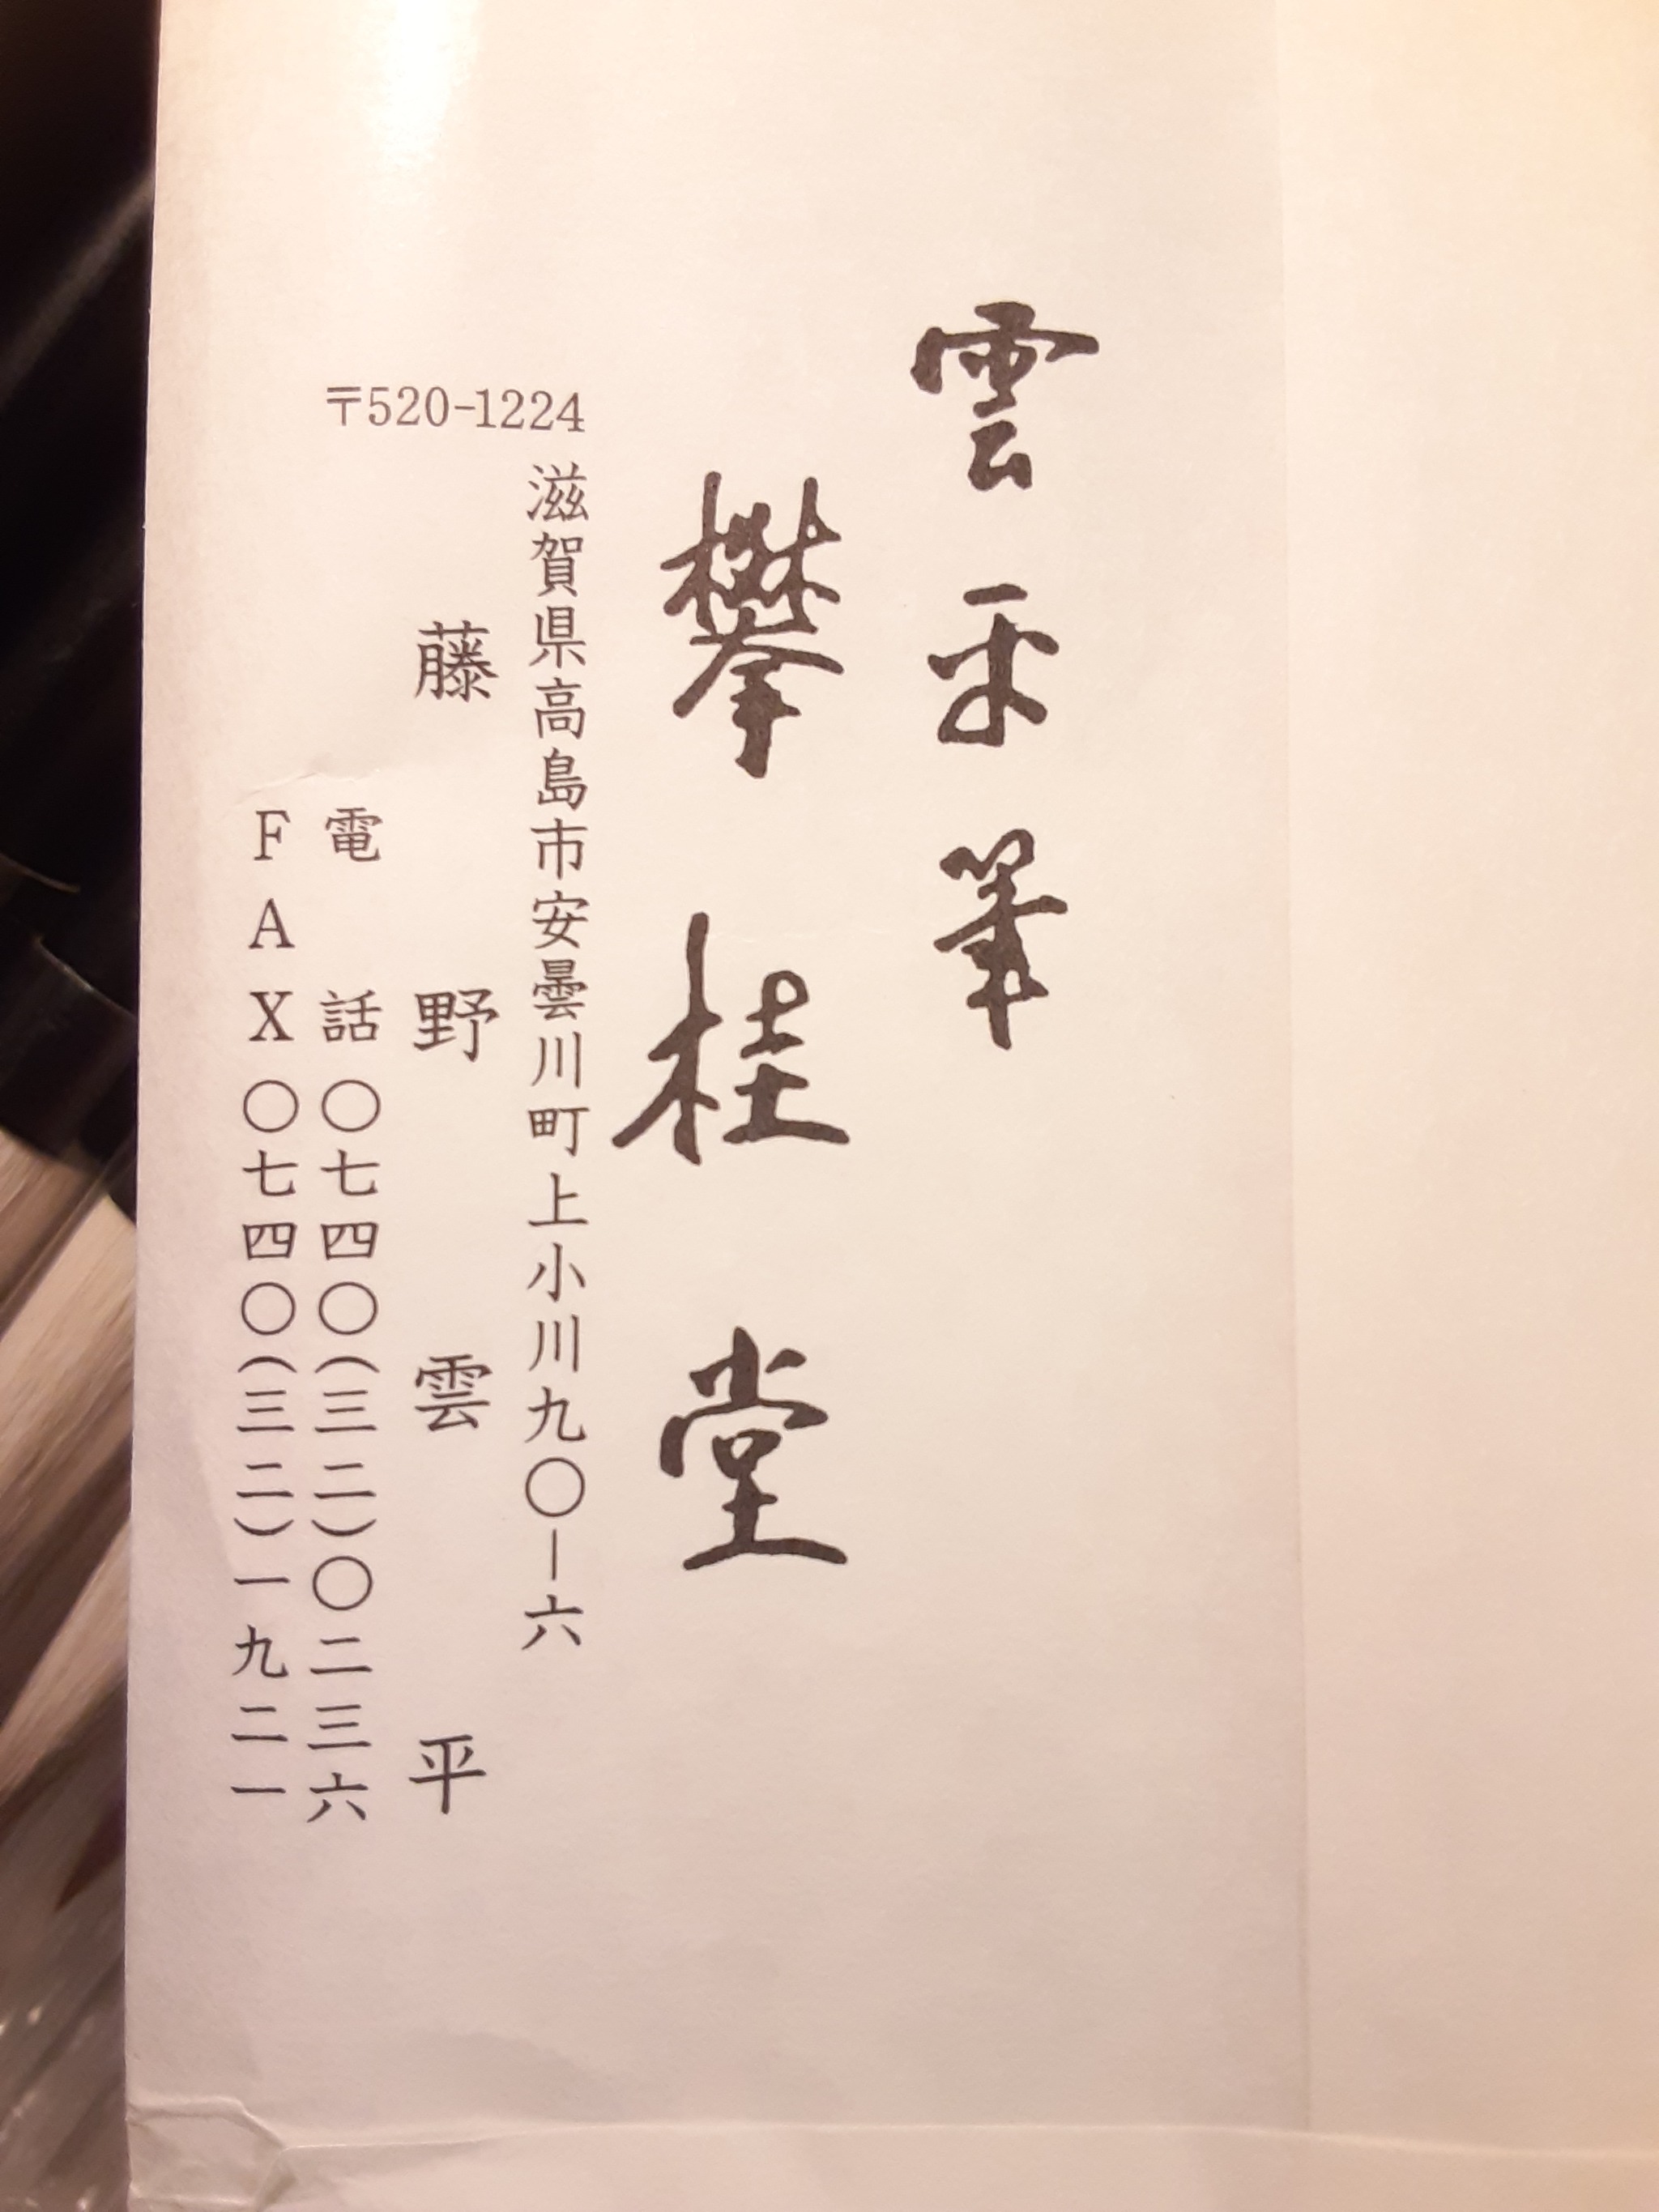 雲平筆
攀桂堂
〒520-1224
滋賀県高島市安曇川町上小川九〇ー六
藤野雲平
電話〇七四〇(三二)〇二三六
FAX〇七四〇(三二)一九二一